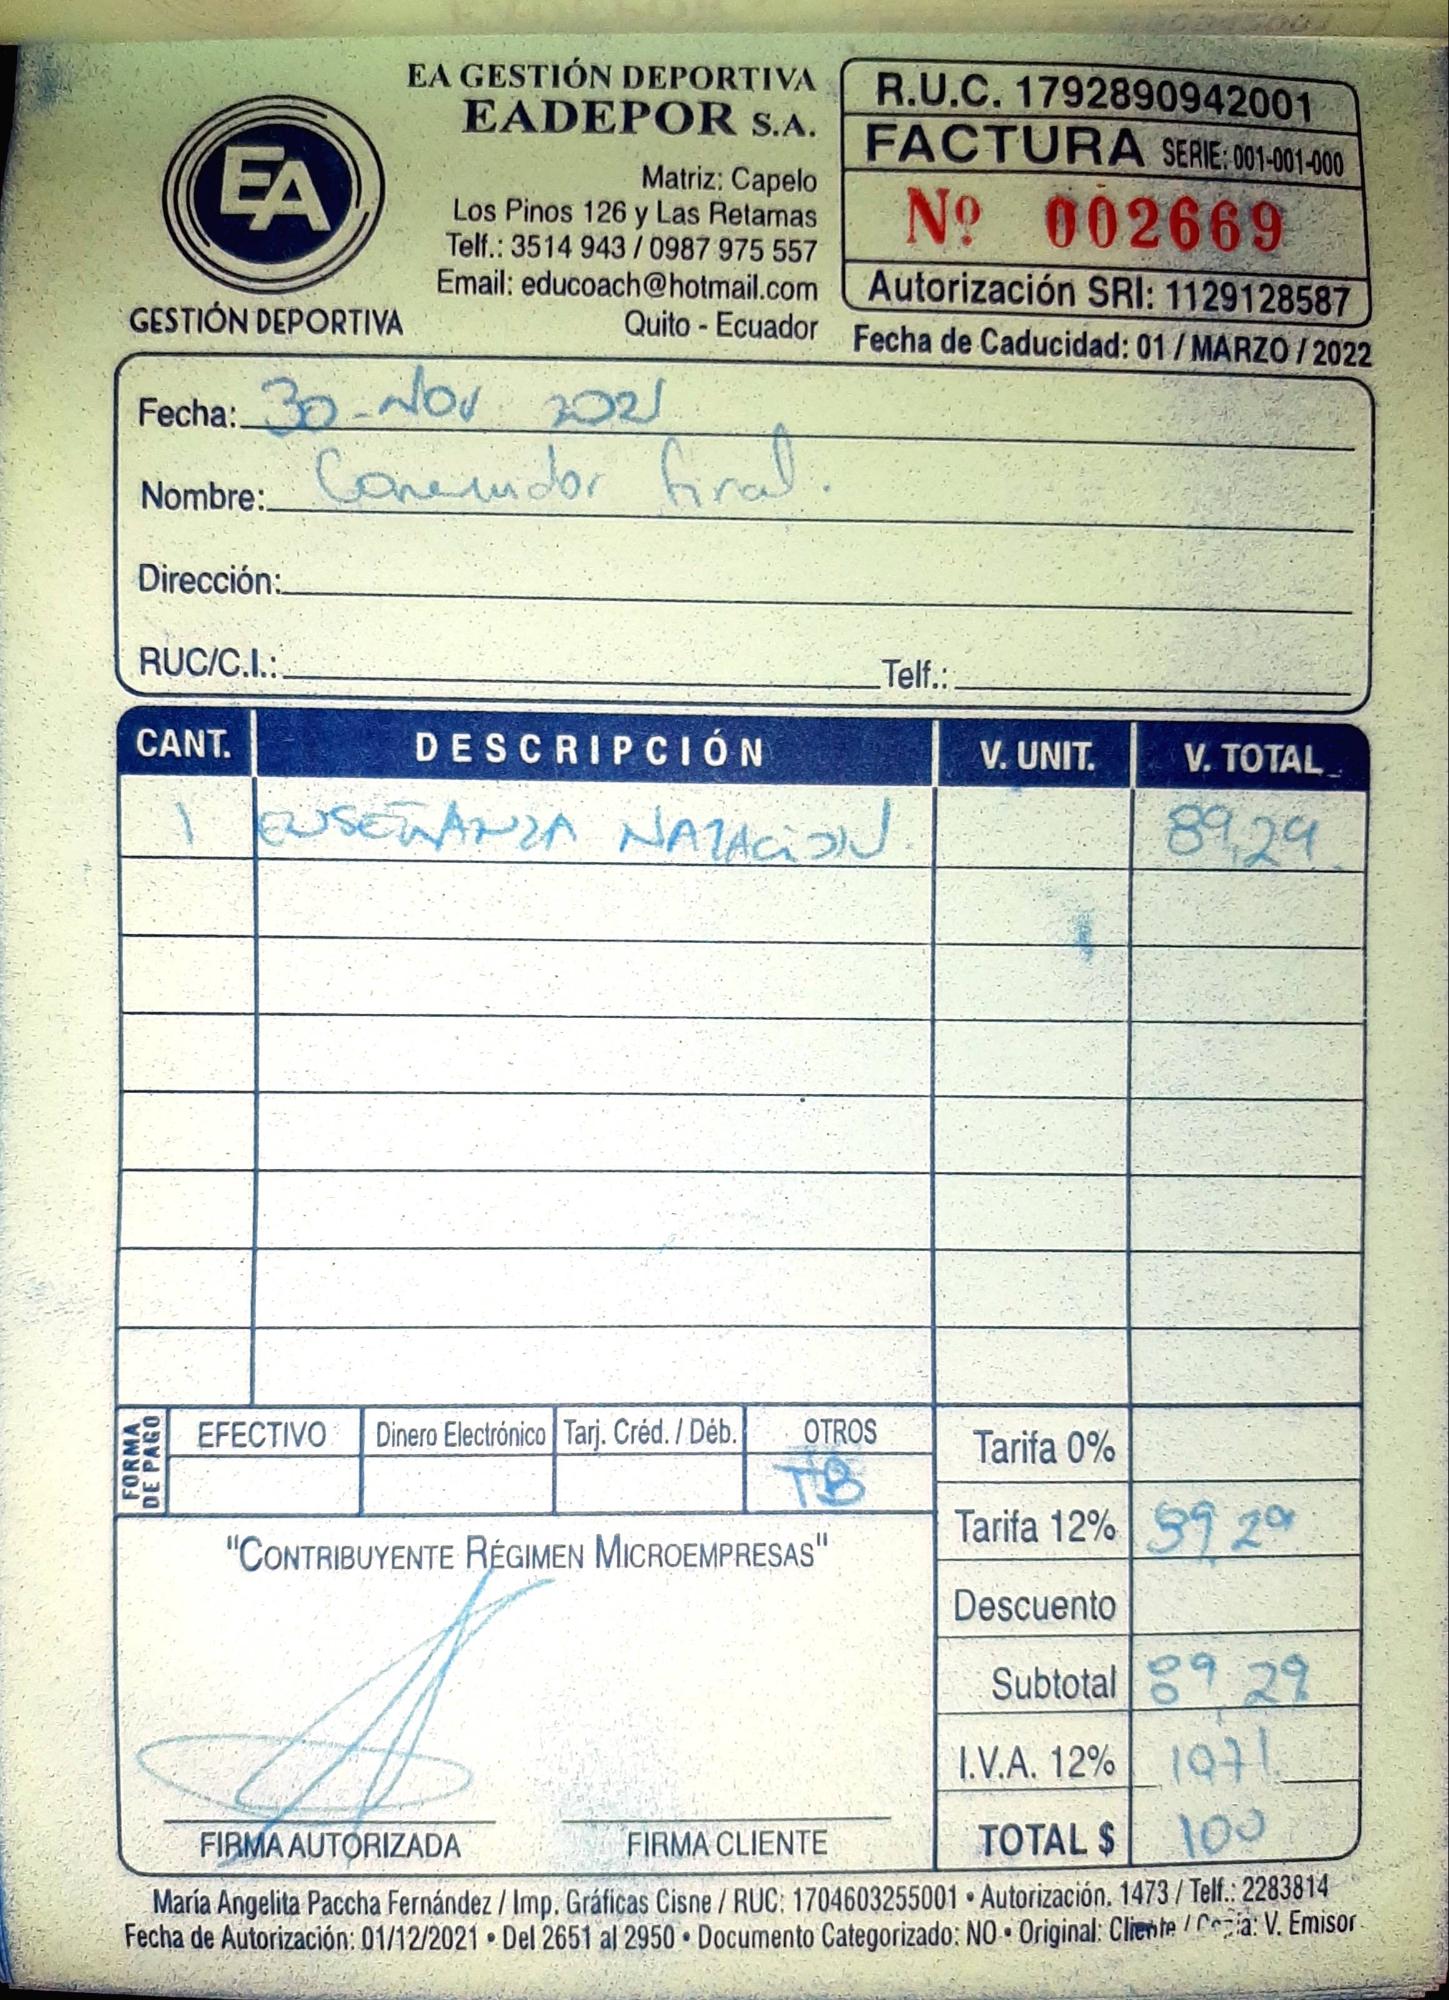 EA GESTIÓN DEPORTIVA
EADEPOR S.A.
Matriz: Capelo
Los Pinos 126 y Las Retamas
Telf.: 3514 943 / 0987 975 557
Email: educoach@hotmail.com
Quito - Ecuador
EA
GESTIÓN DEPORTIVA
R.U.C. 1792890942001
FACTURA SERIE: 001-001-000
Nº 002669
Autorización SRI: 1129128587
Fecha de Caducidad: 01 / MARZO / 2022
Fecha: 30-Nov 2021
Nombre: Consumidor final.
Dirección:
RUC/C.I.: Telf.:
CANT. DESCRIPCIÓN V. UNIT. V. TOTAL
1 ENSEÑANZA NATACIÓN. 89,29
FORMA DE PAGO
EFECTIVO Dinero Electrónico Tarj. Créd. / Déb. OTROS
TB
Tarifa 0%
Tarifa 12% 89,29
Descuento
Subtotal 89,29
I.V.A. 12% 10,71
TOTAL $ 100
"CONTRIBUYENTE RÉGIMEN MICROEMPRESAS"
FIRMA AUTORIZADA FIRMA CLIENTE
María Angelita Paccha Fernández / Imp. Gráficas Cisne / RUC: 1704603255001 • Autorización. 1473 / Telf.: 2283814
Fecha de Autorización: 01/12/2021 • Del 2651 al 2950 • Documento Categorizado: NO • Original: Cliente / Copia: V. Emisor